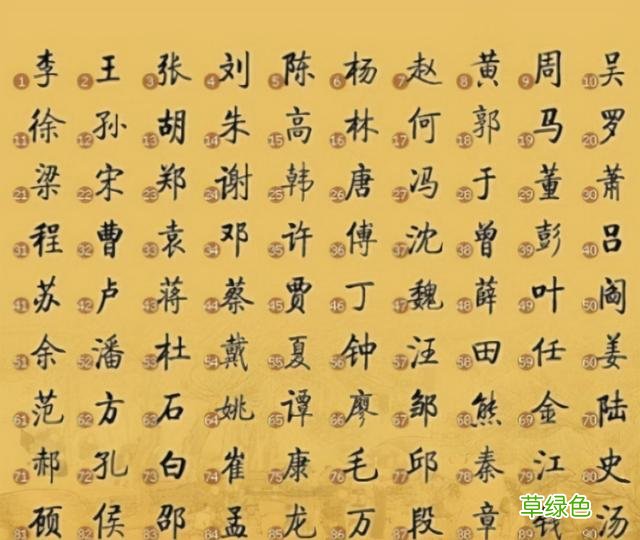 1李 2王 3张 4刘 5陈 6杨 7赵 8黄 9周 10吴
11徐 12孙 13胡 14朱 15高 16林 17何 18郭 19马 20罗
21梁 22宋 23郑 24谢 25韩 26唐 27冯 28于 29董 30萧
31程 32曹 33袁 34邓 35许 36傅 37沈 38曾 39彭 40吕
41苏 42卢 43蒋 44蔡 45贾 46丁 47魏 48薛 49叶 50阎
51余 52潘 53杜 54戴 55夏 56钟 57汪 58田 59任 60姜
61范 62方 63石 64姚 65谭 66廖 67邹 68熊 69金 70陆
71郝 72孔 73白 74崔 75康 76毛 77邱 78秦 79江 80史
81顾 82侯 83邵 84孟 85龙 86万 87段 88章 89钱 90汤
草绿色